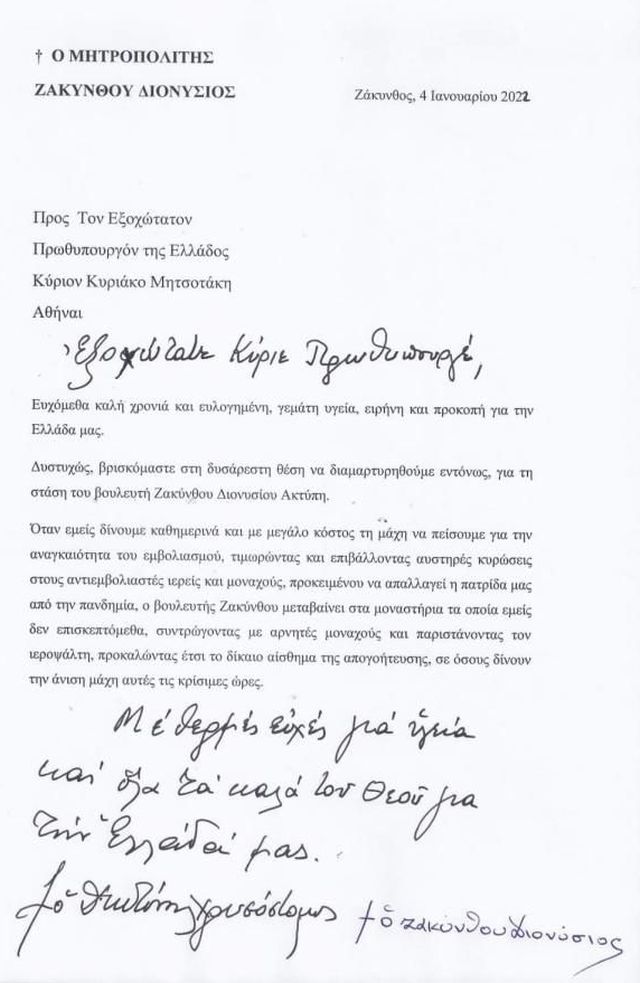 † Ο ΜΗΤΡΟΠΟΛΙΤΗΣ
ΖΑΚΥΝΘΟΥ ΔΙΟΝΥΣΙΟΣ
Ζάκυνθος, 4 Ιανουαρίου 2022
Προς Τον Εξοχώτατον
Πρωθυπουργόν της Ελλάδος
Κύριον Κυριάκο Μητσοτάκη
Αθήναι
Ἐξοχώτατε Κύριε Πρωθυπουργέ,
Ευχόμεθα καλή χρονιά και ευλογημένη, γεμάτη υγεία, ειρήνη και προκοπή για την
Ελλάδα μας.
Δυστυχώς, βρισκόμαστε στη δυσάρεστη θέση να διαμαρτυρηθούμε εντόνως, για τη
στάση του βουλευτή Ζακύνθου Διονυσίου Ακτύπη.
Όταν εμείς δίνουμε καθημερινά και με μεγάλο κόστος τη μάχη να πείσουμε για την
αναγκαιότητα του εμβολιασμού, τιμωρώντας και επιβάλλοντας αυστηρές κυρώσεις
στους αντιεμβολιαστές ιερείς και μοναχούς, προκειμένου να απαλλαγεί η πατρίδα μας
από την πανδημία, ο βουλευτής Ζακύνθου μεταβαίνει στα μοναστήρια τα οποία εμείς
δεν επισκεπτόμεθα, συντρώγοντας με αρνητές μοναχούς και παριστάνοντας τον
ιεροψάλτη, προκαλώντας έτσι το δίκαιο αίσθημα της απογοήτευσης, σε όσους δίνουν
την άνιση μάχη αυτές τις κρίσιμες ώρες.
Μέ θερμές εὐχές γιά ὑγεία
καί ὅλα τά καλά τοῦ Θεοῦ για
τήν Ἑλλάδά μας.
† ὁ Χρυσόστομος
† ὁ Ζακύνθου Διονύσιος